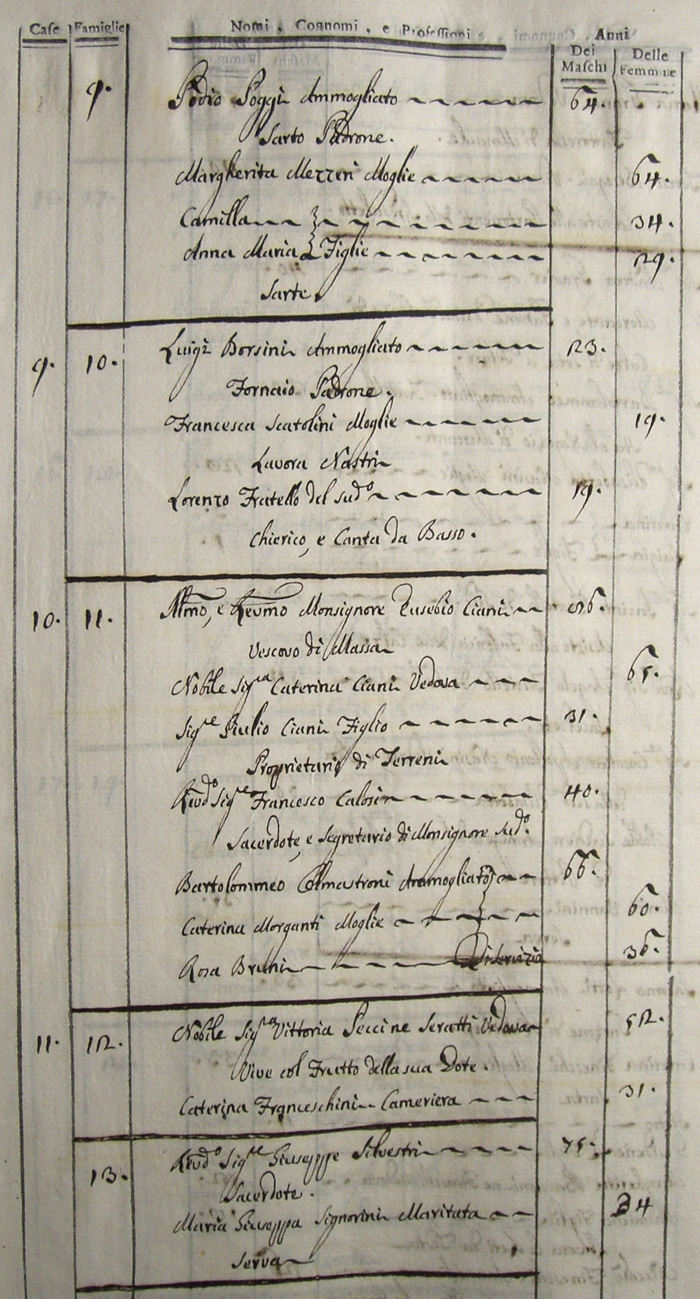 Case Famiglie Nomi, Cognomi, e Professioni Anni
Dei Maschi Delle Femmine
9. Podio Poggi Ammogliato 64.
Sarto Padrone.
Margherita Mezzeri Moglie 64.
Camilla 34
Anna Maria Figlie 29.
Sarte.
9. 10. Luigi Borsini Ammogliato 23.
Fornaio Padrone.
Francesca Scatolini Moglie 19.
Lavora Nastri
Lorenzo Fratello del sudº 19.
Chierico, e Canta da Basso.
10. 11. Illmo, e Revmo Monsignore Eusebio Ciani
Vescovo di Massa
Nobile Sigra Caterina Ciani Vedova 65.
Sigre Giulio Ciani Figlio 31.
Proprietario di Terreni
Revdo Sigre Francesco Calosin 40.
Sacerdote, e Segretario di Monsignore sudº.
Bartolommeo Ammogliato 66.
Caterina Morganti Moglie 60.
Rosa Bruni Di Servizio 36.
11. 12. Nobile Sigra Vittoria Peccine Seratti Vedova 52.
Vive col Frutto della sua Dote.
Caterina Franceschini Cameriera 31.
13. Revdo Sigre Giuseppe Silvestri 75.
Sacerdote.
Maria Giuseppa Signorini Maritata 34
Serva